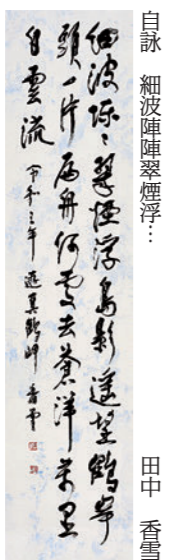 自詠 細波陣陣翠煙浮…
田中 香雪
細波陣々翠煙浮島影遥望鶴岬
頭一片扁舟何処去蒼洋万里
白雲流 令和三年 遊真鶴岬 香雪